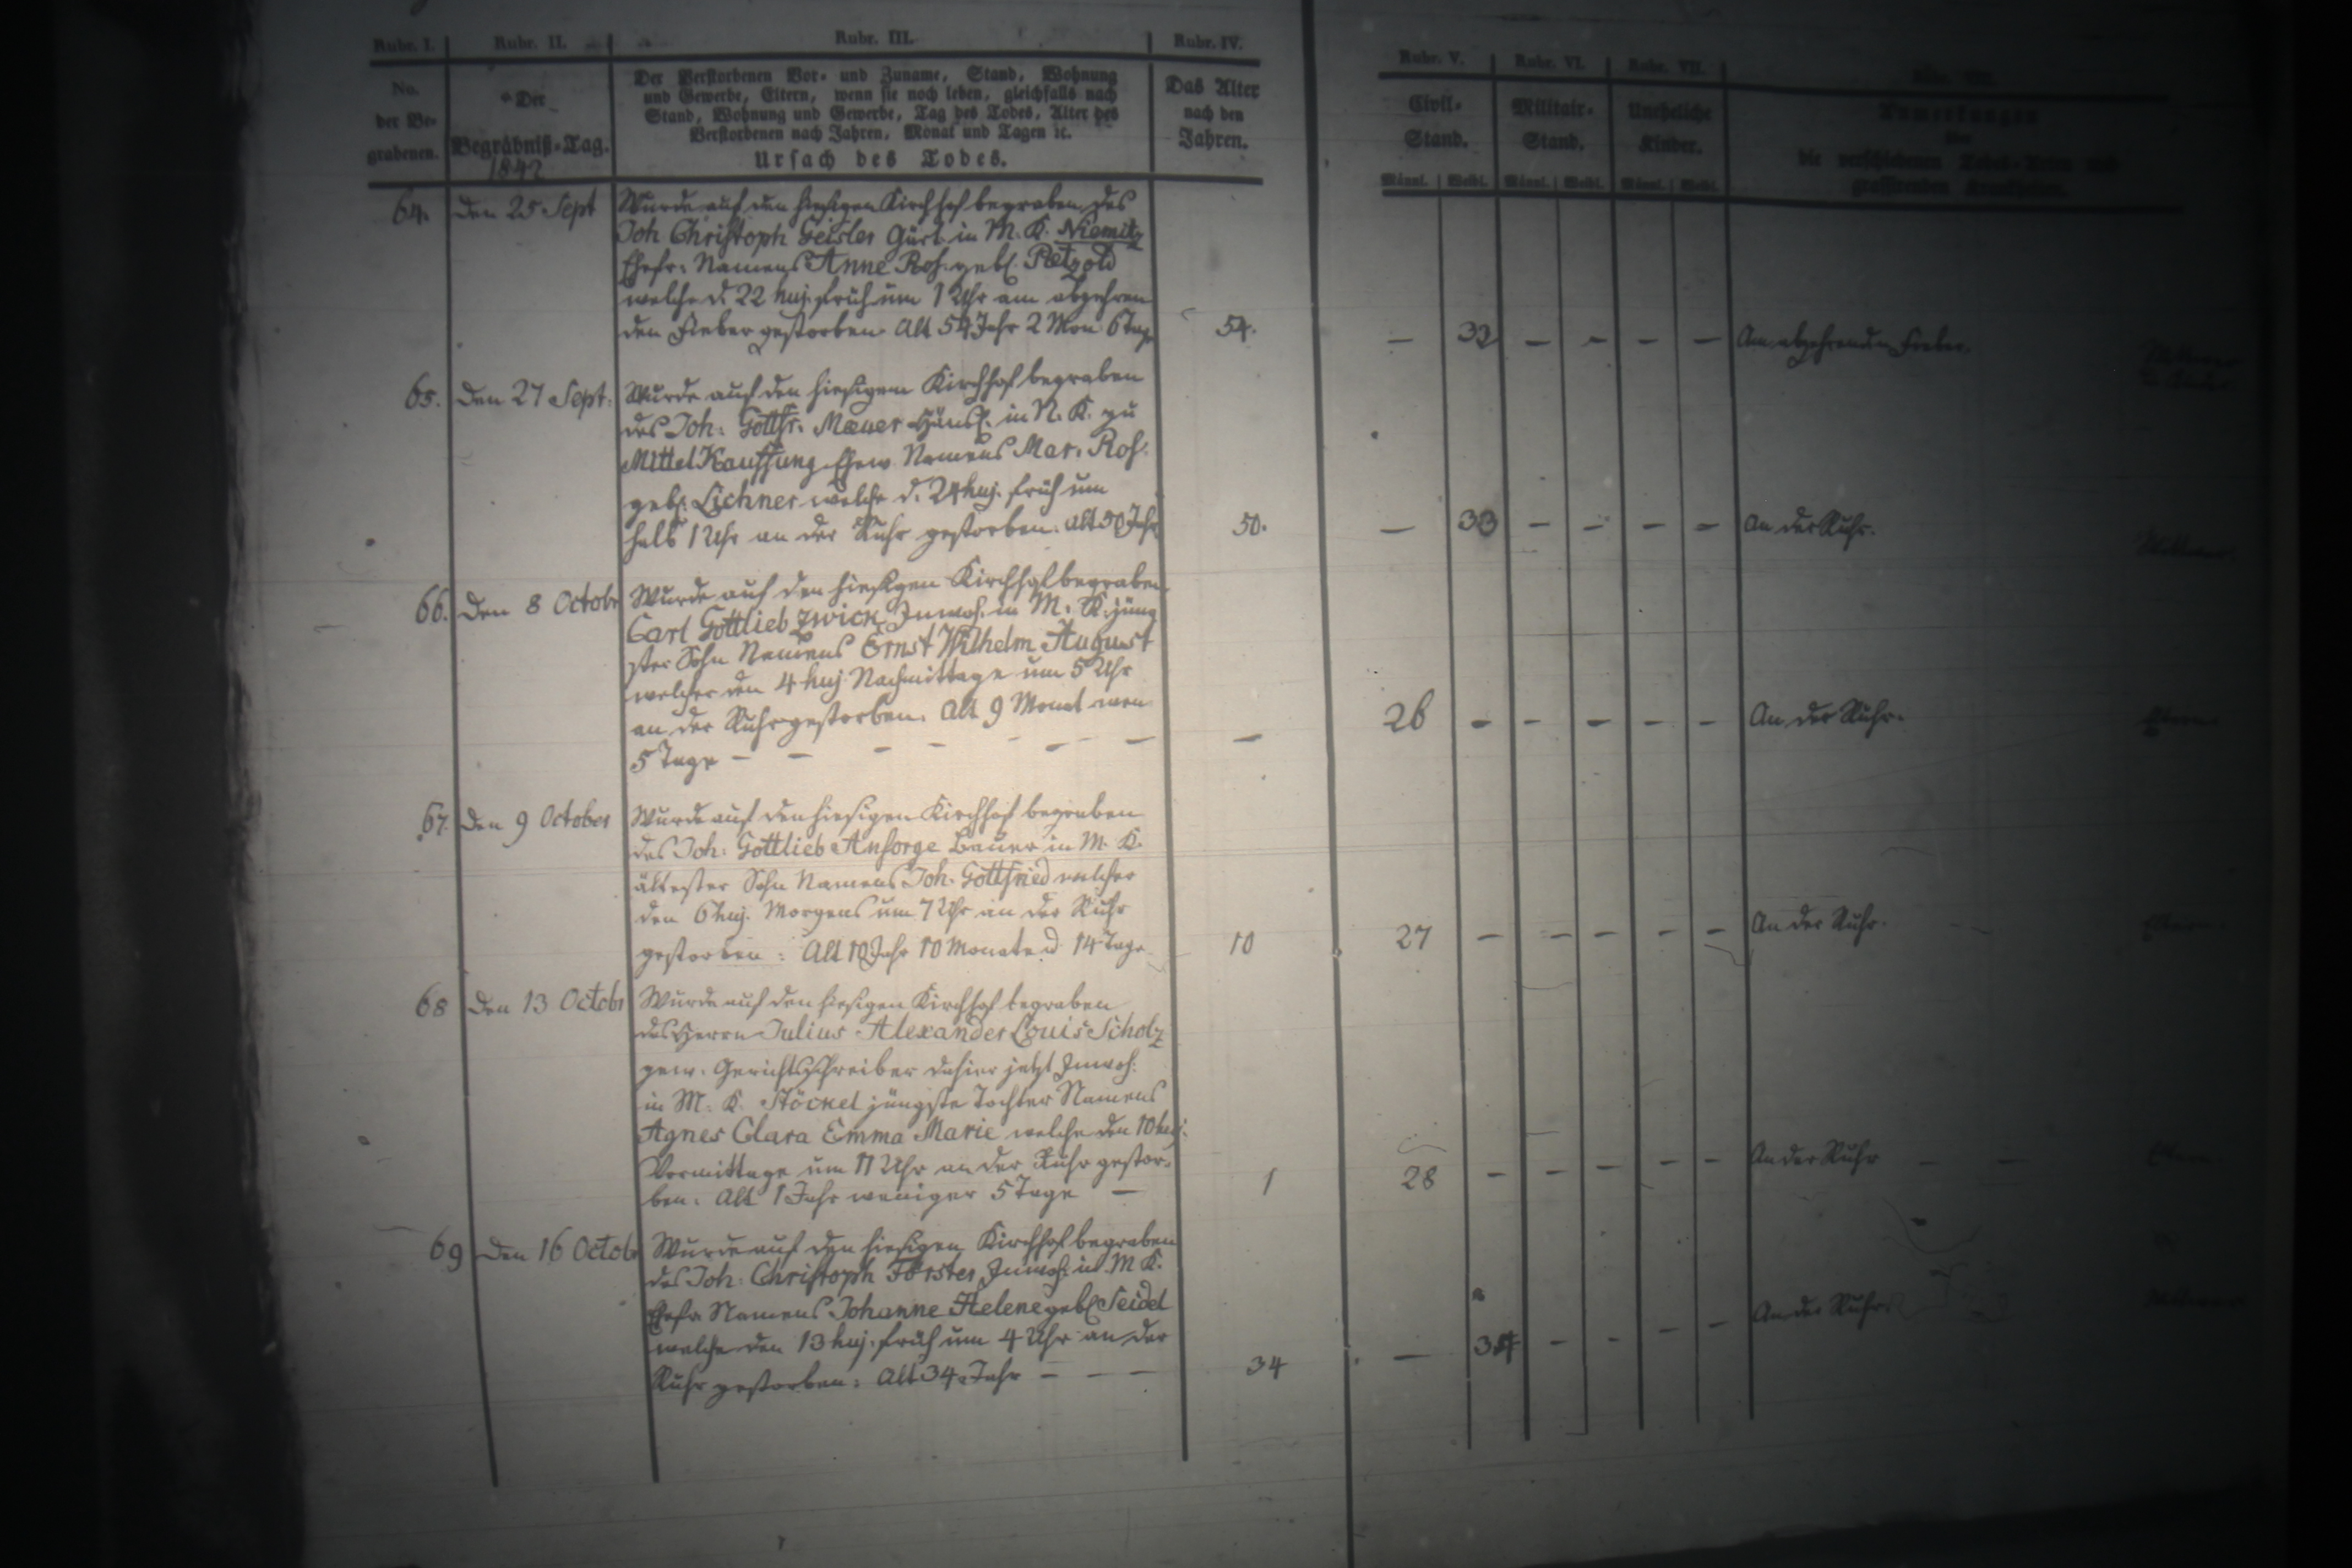 Rubr. I. Rubr. II. Rubr. III. Rubr. IV. Rubr. V. Rubr. VI. Rubr. VII.
No. der Begrabenen.
Der Begräbniß-Tag.
1842
Der Verstorbenen Vor- und Zuname, Stand, Wohnung
und Gewerbe, Eltern, wenn sie noch leben, gleichfalls nach
Stand, Wohnung und Gewerbe, Tag des Todes, Alter des
Verstorbenen nach Jahren, Monat und Tagen ꝛc.
Ursach des Todes.
Das Alter
nach den
Jahren.
Civil-
Stand.
Militair-
Stand.
Uneheliche
Kinder.
Anmerkungen
über
die verschiedenen Todes-Arten und
grassirenden Krankheiten.
Männl. Weibl. Männl. Weibl. Männl. Weibl.
64. den 25 Sept Wurde auf den hiesigen Kirchhof begraben des
Joh Christoph Geisler Gärt. in M. K. Niemitz
Ehefr: Namens Anne Ros. geb. Petzold
welche d. 22 huj. früh um 1 Uhr am abzehren
den Fieber gestorben Alt 54 Jahr 2 Mon 6 Tage 54. — 32 — — — — Am abzehrenden Fieber
65. den 27 Sept: Wurde auf den hiesigem Kirchhof begraben
des Joh: Gottfr. Häusl. in N. K. zu
Mittel Kauffung Namens Mar. Ros.
geb. Lichner welche d. 24 huj. früh um
halb 1 Uhr an der Ruhr gestorben. alt 50 Jahr 50. — 33 — — — — An der Ruhr.
66. den 8 Octobr Wurde auf den hiesigen Kirchhof begraben
Carl Gottlieb Zwick Inwoh. in M. K. jüng
ster Sohn Namens Ernst Wilhelm August
welcher den 4 huj. Nachmittags um 5 Uhr
an der Ruhr gestorben. Alt 9 Monat wen
5 Tage — — — — — — — — 26 — — — — — An der Ruhr.
67. den 9 October Wurde auf den hiesigen Kirchhof begraben
des Joh: Gottlieb Ansorge Bauer in M. K.
ältester Sohn Namens Joh. Gottfried welcher
den 6 huj. Morgens um 7 Uhr an der Ruhr
gestorben: Alt 10 Jahr 10 Monate 14 Tage 10 27 — — — — — An der Ruhr.
68 den 13 Octobr Wurde auf den hiesigen Kirchhof begraben
des Herrn Julius Alexander Louis Scholz
gew. Gerichtsschreiber dahier jetzt Inwoh:
in M. K. Stöckel jüngste Tochter Namens
Agnes Clara Emma Marie welche den 10 huj.
Vormittags um 11 Uhr an der Ruhr gestor-
ben: Alt 1 Jahr weniger 5 Tage — 1 28 — — — — — An der Ruhr — —
69 den 16 Octobr Wurde auf den hiesigen Kirchhof begraben
des Joh: Christoph Förster Inwoh. in M K.
Ehefr. Namens Johanne Helene geb. Seidel
welche den 13 huj. früh um 4 Uhr an der
Ruhr gestorben: Alt 34 Jahr — — — 34 — 34 — — — — An der Ruhr